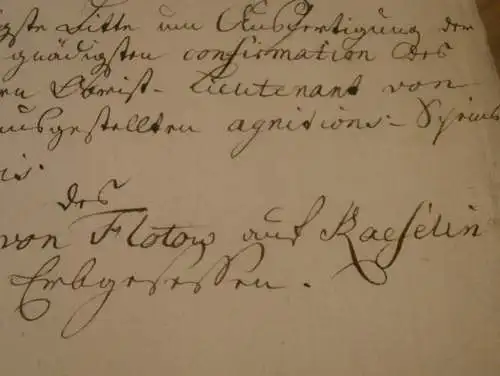 igste Bitte um Ausfertigung der
gnädigsten confirmation des
rn Obrist-Lieutenant von
ausgestellten agnitions-Schein
is.
des
von Flotow auf Kaeselin
Erbgesessen.